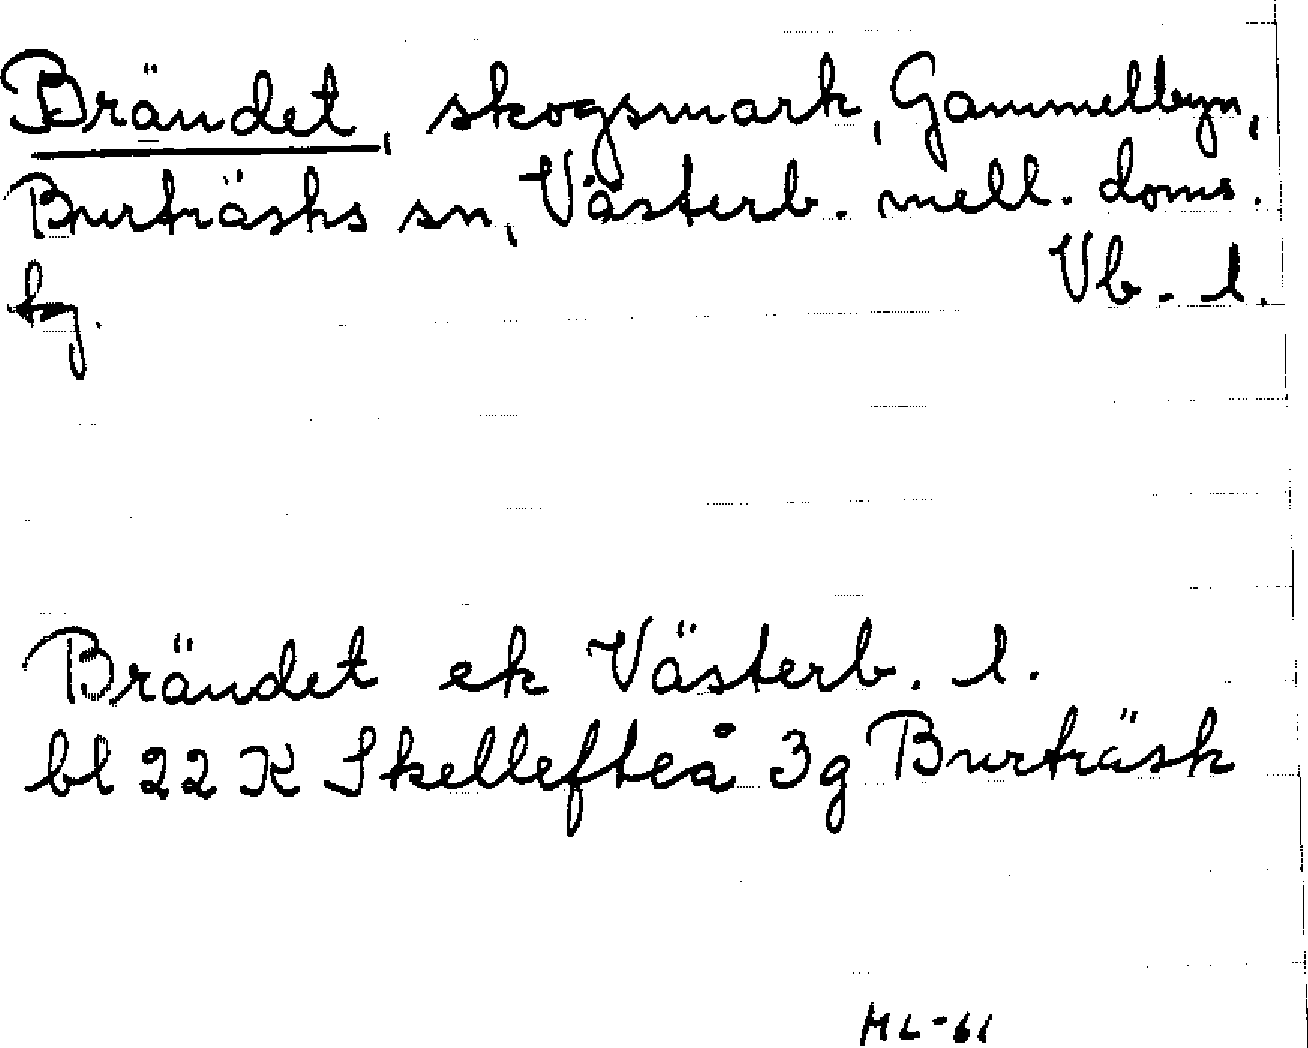 Brändet, skogsmark, Gammelbyn,
Burträsks sn, Västerb. mell. doms.
tg. Vb. l.
Brändet ek Västerb. l.
bl 22 K Skellefteå 3g Burträsk
ML-61